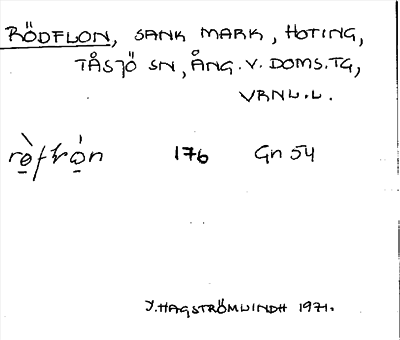 RÖDFLON, SANK MARK, HOTING,
TÅSJÖ SN, ÅNG. V. DOMS. TG,
VRNL. L.
176 Gn 54
Y. HAGSTRÖMLINDH 1971.